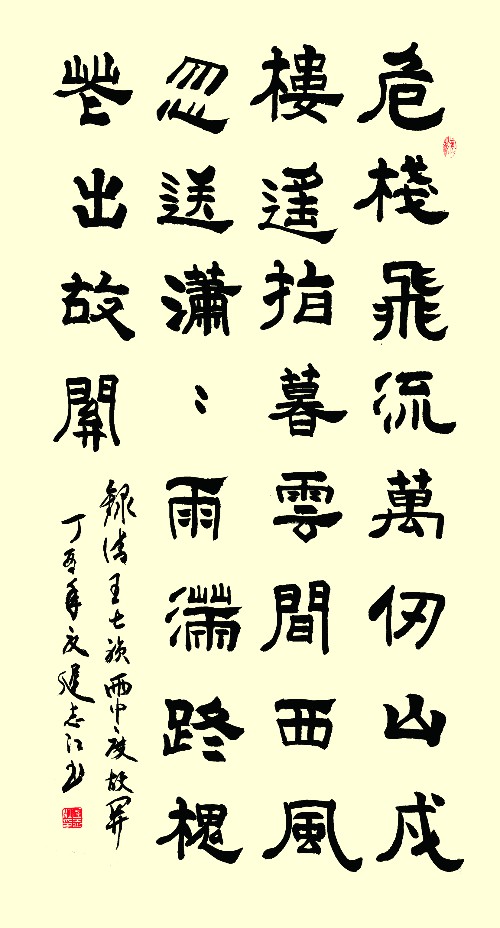 危棧飛流萬仞山戍
樓遙指暮雲間西風
忽送瀟〻雨滿路槐
花出故關
錄清王士禛雨中度故關
丁亥年夏志江书